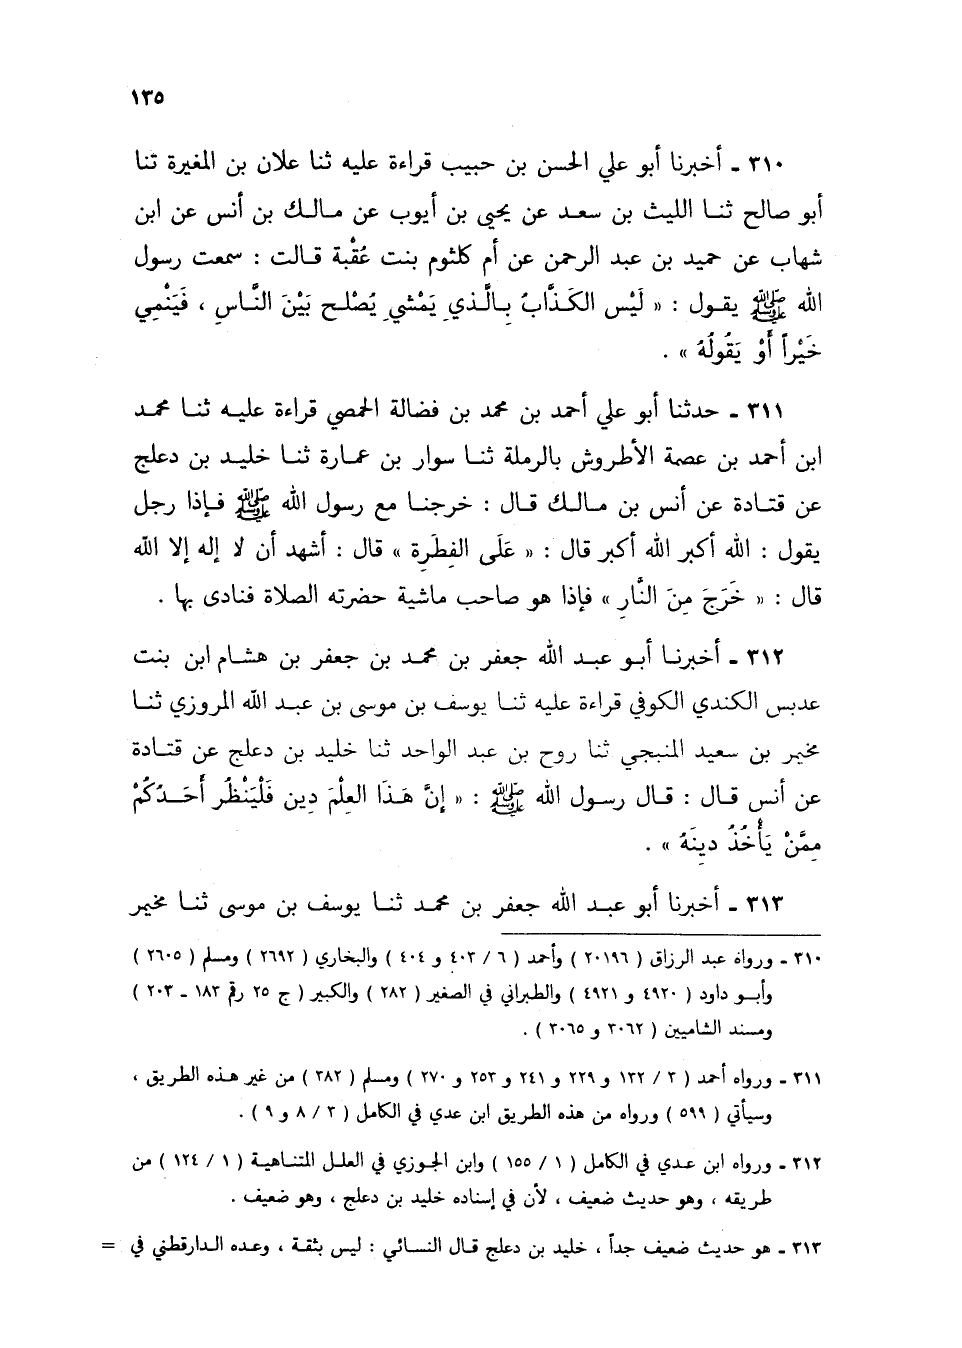 ١٣٥
٣١٠ ـ أخبرنا أبو علي الحسن بن حبيب قراءة عليه ثنا علان بن المغيرة ثنا
أبو صالح ثنا الليث بن سعد عن يحيى بن أيوب عن مالك بن أنس عن ابن
شهاب عن حميد بن عبد الرحمن عن أم كلثوم بنت عُقْبة قالت : سمعت رسول
الله ﷺ يقول : « لَيْس الكَذَّابُ بِالَّذي يَمْشي يُصْلح بَيْنَ النَّاسِ ، فَيَنْمِي
خَيْراً أَوْ يَقُولُهُ » .
٣١١ ـ حدثنا أبو علي أحمد بن محمد بن فضالة الحمصي قراءة عليه ثنا محمد
ابن أحمد بن عصمة الأطروش بالرملة ثنا سوار بن عمارة ثنا خليد بن دعلج
عن قتادة عن أنس بن مالك قال : خرجنا مع رسول الله ﷺ فإذا رجل
يقول : الله أكبر الله أكبر قال : « عَلَى الفِطَرة » قال : أشهد أن لا إله إلا الله
قال : « خَرَجَ مِنَ النَّارِ » فإذا هو صاحب ماشية حضرته الصلاة فنادى بها .
٣١٢ ـ أخبرنا أبو عبد الله جعفر بن محمد بن جعفر بن هشام ابن بنت
عدبس الكندي الكوفي قراءة عليه ثنا يوسف بن موسى بن عبد الله المروزي ثنا
مخيمر بن سعيد المنبجي ثنا روح بن عبد الواحد ثنا خليد بن دعلج عن قتادة
عن أنس قال : قال رسول الله ﷺ : « إِنَّ هَذَا العِلْمَ دِين فَلْيَنْظُر أَحَدُكُمْ
مِمَّنْ يَأْخُذُ دِينَهُ » .
٣١٣ ـ أخبرنا أبو عبد الله جعفر بن محمد ثنا يوسف بن موسى ثنا مخيمر
٣١٠ ـ ورواه عبد الرزاق ( ٢٠١٩٦ ) وأحمد ( ٦ / ٤٠٣ و ٤٠٤ ) والبخاري ( ٢٦٩٢ ) ومسلم ( ٢٦٠٥ )
وأبو داود ( ٤٩٢٠ و ٤٩٢١ ) والطبراني في الصغير ( ٢٨٢ ) والكبير ( ج ٢٥ رقم ١٨٣ ـ ٢٠٣ )
ومسند الشاميين ( ٣٠٦٢ و ٣٠٦٥ ) .
٣١١ ـ ورواه أحمد ( ٣ / ١٣٢ و ٢٢٩ و ٢٤١ و ٢٥٣ و ٢٧٠ ) ومسلم ( ٣٨٢ ) من غير هذه الطريق ،
وسيأتي ( ٥٩٩ ) ورواه من هذه الطريق ابن عدي في الكامل ( ٣ / ٨ و ٩ ) .
٣١٢ ـ ورواه ابن عدي في الكامل ( ١ / ١٥٥ ) وابن الجوزي في العلل المتناهية ( ١ / ١٢٤ ) من
طريقه ، وهو حديث ضعيف ، لأن في إسناده خليد بن دعلج ، وهو ضعيف .
٣١٣ ـ هو حديث ضعيف جداً ، خليد بن دعلج قال النسائي : ليس بثقة ، وعده الدارقطني في =